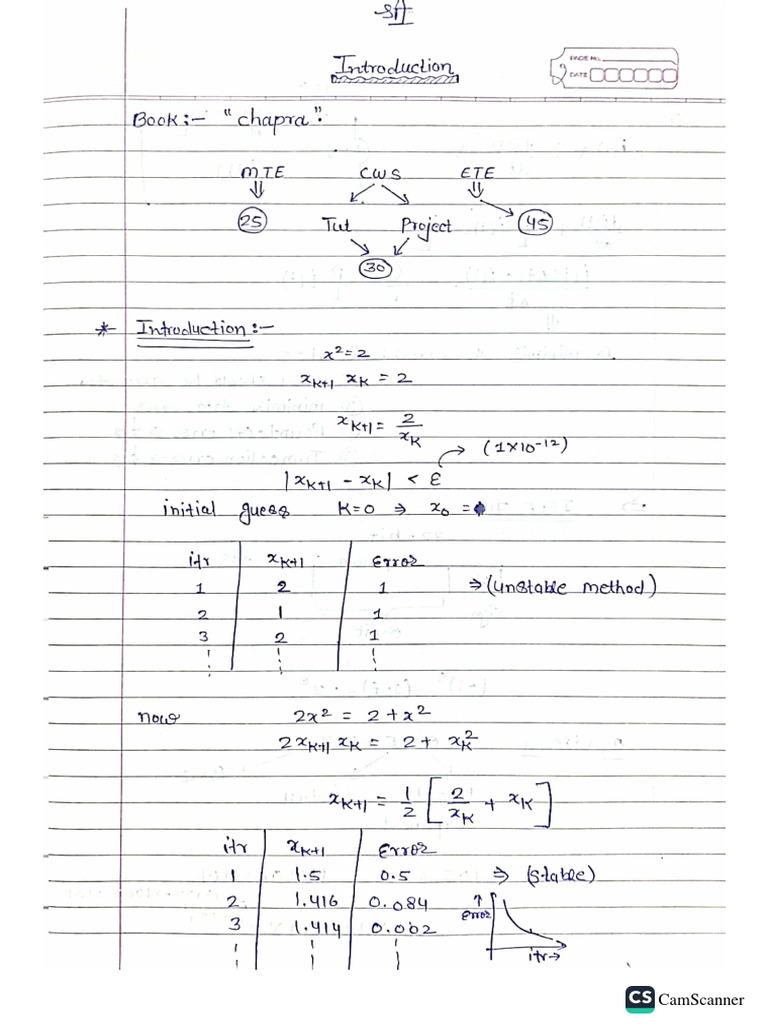 Introduction
PAGE NO.
DATE
Book:- "chapra".
MTE CWS ETE
25 Tut Project 45
30
* Introduction:-
x² = 2
x_{K+1} x_K = 2
x_{K+1} = 2/x_K
→ (1×10⁻¹²)
|x_{K+1} - x_K| < ε
initial guess K=0 ⇒ x₀ =
itr x_{K+1} Error
1 2 1 ⇒ (unstable method)
2 1 1
3 2 1
now 2x² = 2 + x²
2x_{K+1} x_K = 2 + x_K²
x_{K+1} = 1/2 [2/x_K + x_K]
itr x_{K+1} Error
1 1.5 0.5 ⇒ (stable)
2 1.416 0.084 ↑
Error
3 1.414 0.002
itr→
CS CamScanner